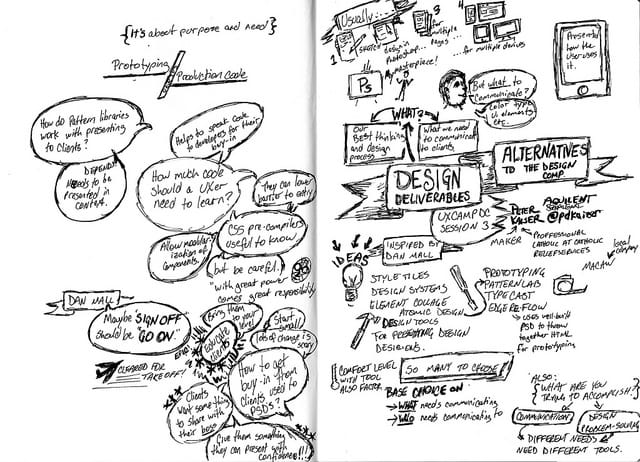 {It's about purpose and need}
Prototyping
Production code
How do Pattern libraries
work with presenting
to clients?
DEPENDS
Needs to be
Presented in
context.
Helps to speak code
to developers for their
buy-in
How much code
should a UXer
need to learn?
They can lower
barrier to entry
CSS pre-compilers
useful to know,
Allow modular-
ization of
components.
but be careful.
"with great power
comes great responsibility
DAN MALL
Maybe "SIGN OFF"
should be "GO ON."
CLEARED FOR
TAKEOFF!
Bring them
to your
level
Educate
clients
Start
small!
Lots of change is
scary
How to get
buy-in from
clients used to
PSDs?
Clients
want something
to share with
their boss
Give them something
they can present with
confidence!!!
Usually...
1
Sketch
design in
Photoshop...
My masterpiece!
3
for
multiple
pages...
4
...for multiple devices
Presents
how the
user uses
it.
Ps
But what to
communicate?
Color, type,
UI elements
etc.
WHAT?
Our
BEST thinking
and design
process
What we need
to communicate
to clients
DESIGN
DELIVERABLES
ALTERNATIVES
TO THE DESIGN
COMP
UXCAMP DC
SESSION 3
PETER
KAISER
AQUILENT
@pdkaiser
MAKER
PROFESSIONAL
CATHOLIC AT CATHOLIC
RELIEF SERVICES
local
company
MACAW
INSPIRED BY
DAN MALL
IDEAS
STYLE TILES
DESIGN SYSTEMS
ELEMENT COLLAGE
ATOMIC DESIGN
DESIGN TOOLS
FOR PRESENTING DESIGN
DECISIONS.
PROTOTYPING
PATTERN LAB
TYPECAST
EDGE REFLOW
uses well-built
PSD to throw
together HTML
for prototyping
COMFORT LEVEL
WITH TOOL
ALSO FACTOR
SO MANY TO CHOOSE!
BASE CHOICE ON
WHAT needs communicating
WHO needs communicating to
ALSO:
{WHAT ARE YOU
TRYING TO ACCOMPLISH?}
COMMUNICATION
DESIGN
PROBLEM-SOLVING
DIFFERENT NEEDS
NEED DIFFERENT TOOLS.